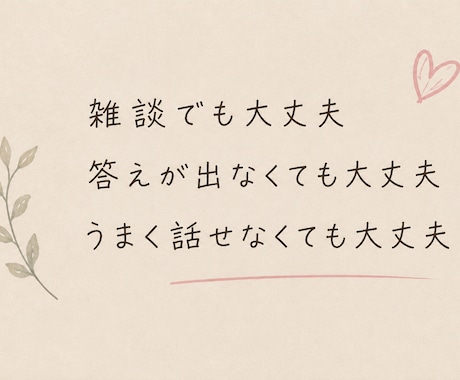 雑談でも大丈夫
答えが出なくても大丈夫
うまく話せなくても大丈夫